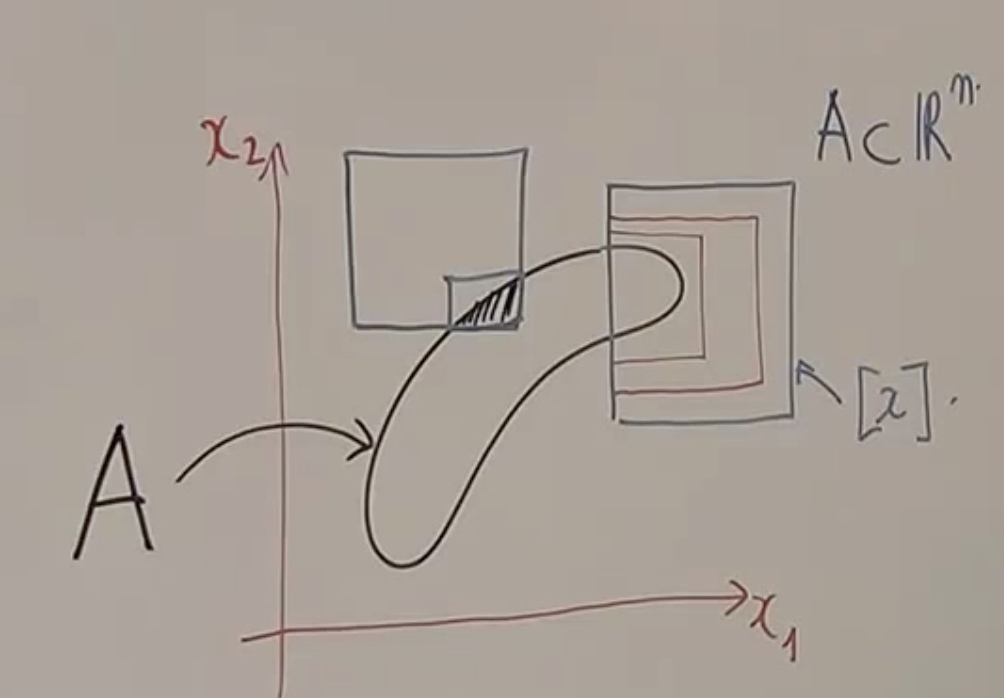 A ⊂ ℝⁿ.
x₂
[x].
A
x₁